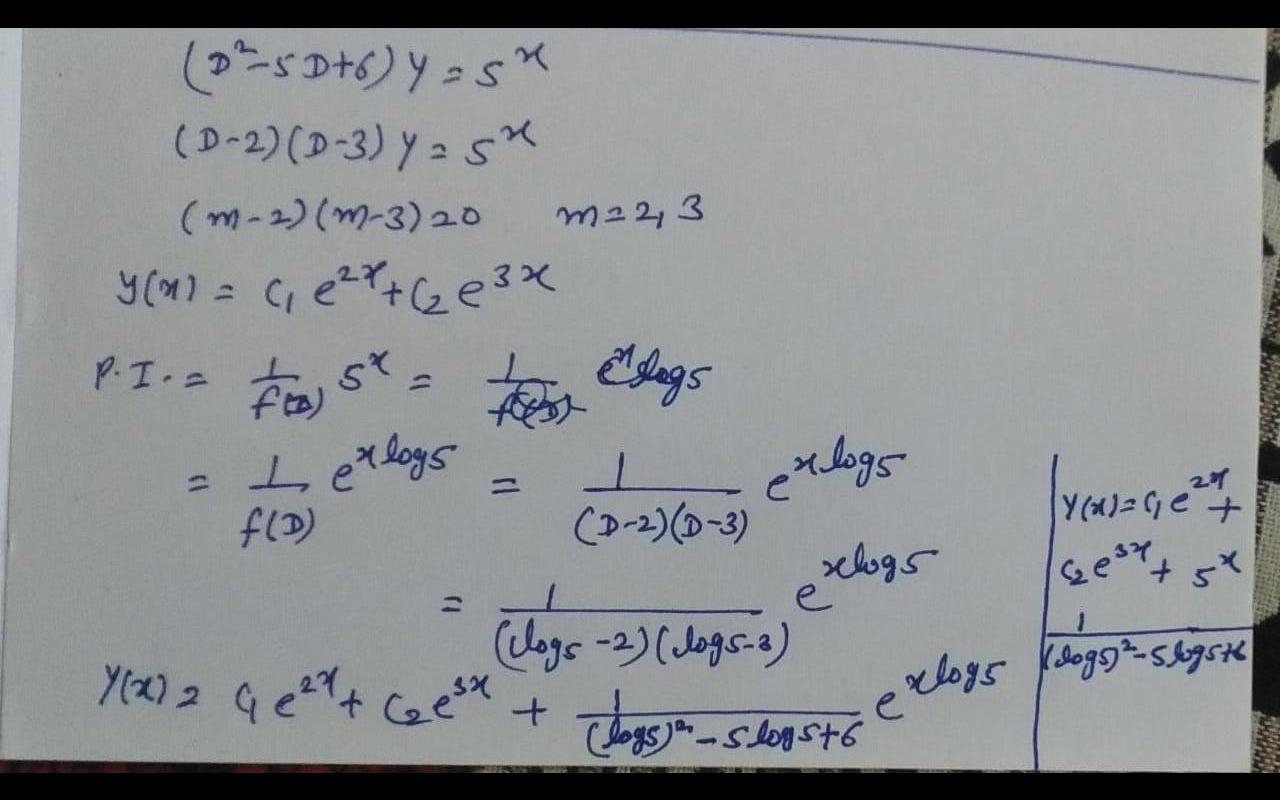 (D²-5D+6) y = 5^x
(D-2)(D-3) y = 5^x
(m-2)(m-3)=0    m=2,3
y(x) = C₁ e^{2x} + C₂ e^{3x}
P.I. = 1/f(D) 5^x = 1/ e^{x log5}
= 1/f(D) e^{x log5} = 1/((D-2)(D-3)) e^{x log5}
= 1/((log5 -2)(log5-3)) e^{x log5}
Y(x) = C₁ e^{2x} + C₂ e^{3x} + 1/((log5)² - 5 log5+6) e^{x log5}
Y(x) = C₁ e^{2x} +
C₂ e^{3x} + 5^x
1/((log5)² - 5 log5+6)